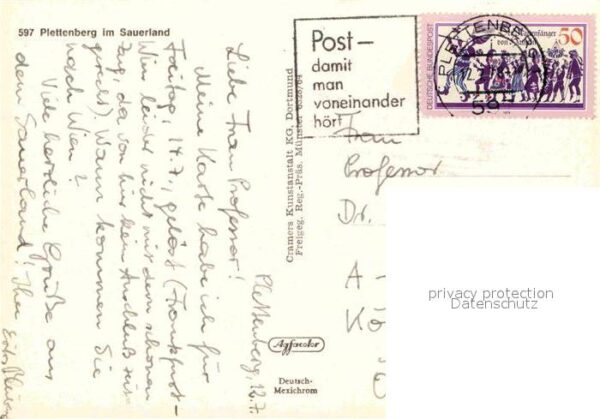 597 Plettenberg im Sauerland
Post –
damit
man
voneinander
hört
PLETTENBERG
DEUTSCHE BUNDESPOST
Rattenfänger
von Hameln
50
Plettenberg, 12.7.
Liebe Frau Professor!
Meine Karte habe ich für
Freitag, 14.7., gelöst (Frankfurt-
Wien leider nicht mit dem schönen
Zug, da von hier kein Anschluß
Wann kommen Sie
nach Wien?
Viele herzliche Grüße aus
dem Sauerland! Ihre
Cramers Kunstanstalt KG, Dortmund
Freigeg. Reg.-Präs. Münster
Agfacolor
Deutsch-
Mexichrom
Frau
Professor
Dr.
A -
privacy protection
Datenschutz